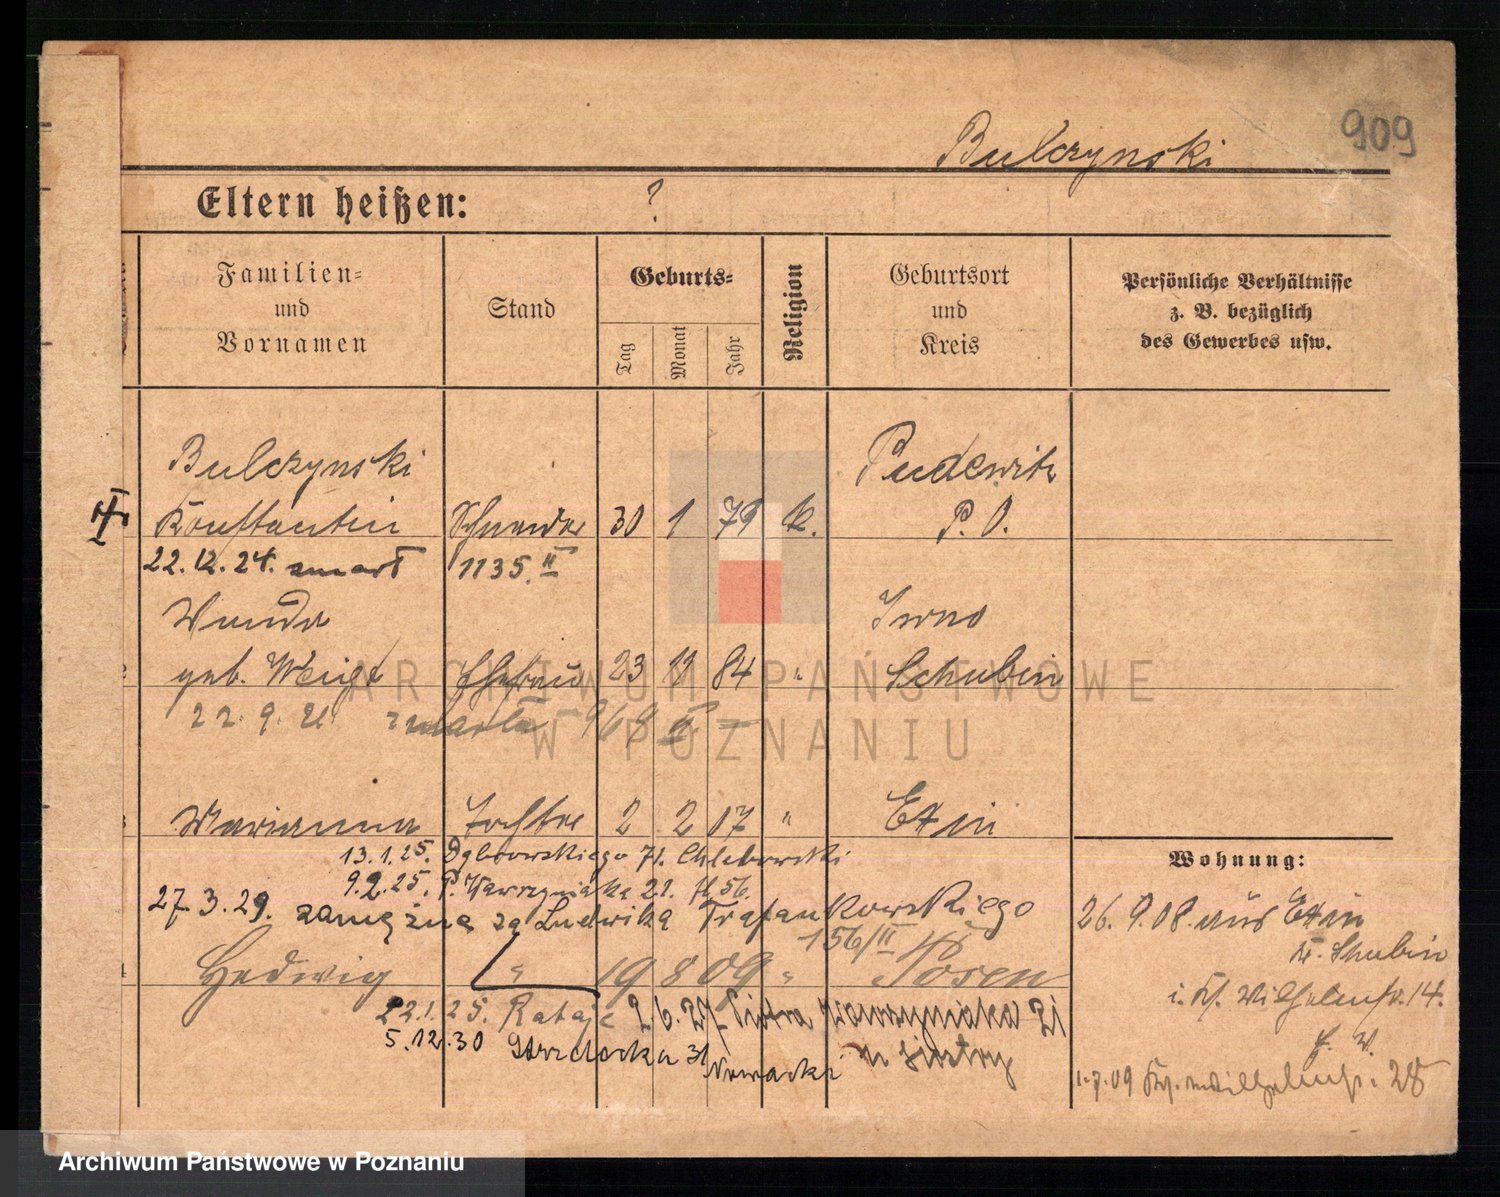 909
Bulczynski
Eltern heißen: ?
Familien-
und
Vornamen
Stand
Geburts-
Tag
Monat
Jahr
Religion
Geburtsort
und
Kreis
Persönliche Verhältnisse
z. B. bezüglich
des Gewerbes usw.
Bulczynski Pudewitz
Konstantin Schneider 30 1 79 k. P. O.
22.12.24. zmarł 1135.II
Wanda
geb. Ehefrau 23 11 84 " Schubin
22.9.21 zmarła 968 II
Marianna Tochter 2 2 07 " Exin
13.1.25. Dąbrowskiego 71. Chlebowski
9.2.25. P. Wawrzyniaka 21. 56.
27.3.29. zamężna za Ludwika
156/II
Hedwig " 19 8 09 " Posen
22.1.25. Rataje 2.6.27. Piotra Wawrzyniaka 21
u siostry
5.12.30 31 Nowacki
Wohnung:
26.9.08. aus Exin
Kr. Schubin
i. Wilhelmstr. 14.
1.7.09 Wilhelmstr. 28
Archiwum Państwowe w Poznaniu
ARCHIWUM PAŃSTWOWE
W POZNANIU